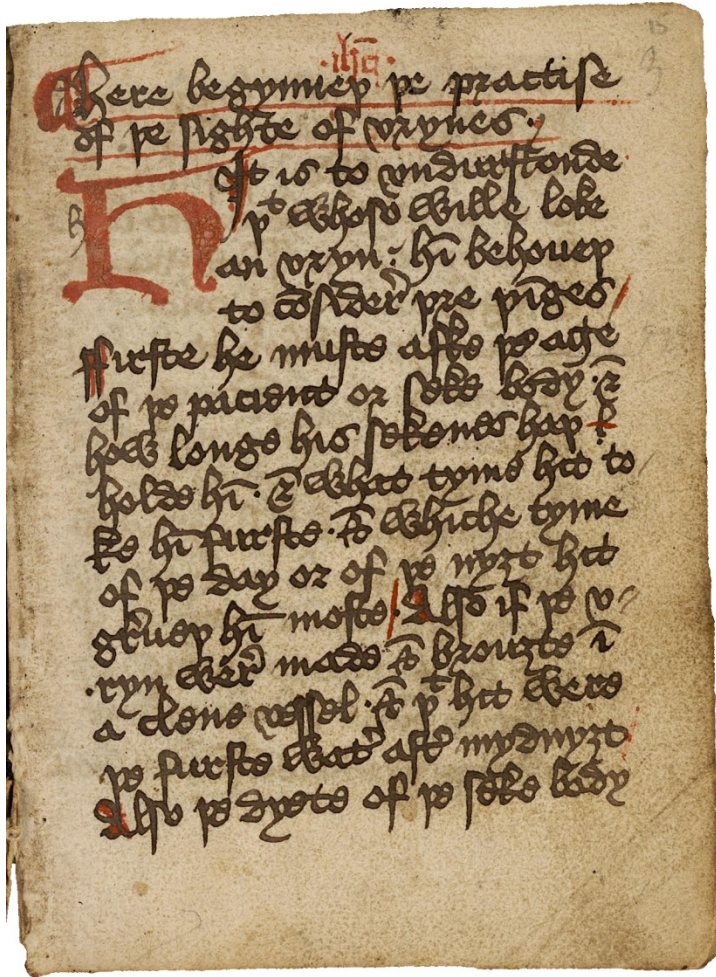 ·ihc·
here begynneþ þe practise
of þe sighte of vrynes·
Hit is to vndurstonde
þᵗ whoso wille loke
an vryn· hī behoueþ
to cōsider̄ þre þīges
ffurste he muste aske þe age
of þe pacient or seke body·⁊
how longe his sekenes haþ
holde hī· ⁊ what tyme hit to
ke hī furste· ⁊ whiche tyme
of þe day or of þe nyȝt hit
gr̄ueþ hī moste· Also if þe v
ryn wer̄ made ⁊ brouȝte ī
a clene vessel· ⁊ þᵗ hit were
þe furste wat̄ aft̄ mydnyȝt
Also þe dyete of þe seke body